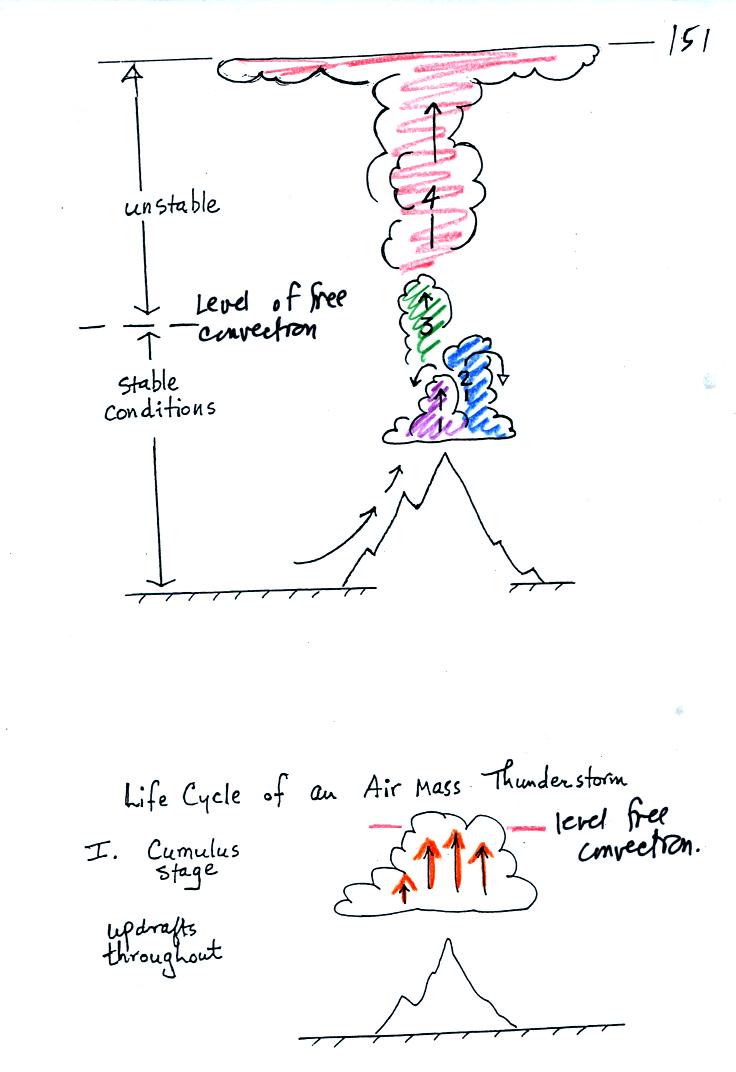 151
unstable
4
Level of free
convection
3
2
stable
conditions
1
Life Cycle of an Air Mass Thunderstorm
level free
convection.
I. Cumulus
stage
updrafts
throughout